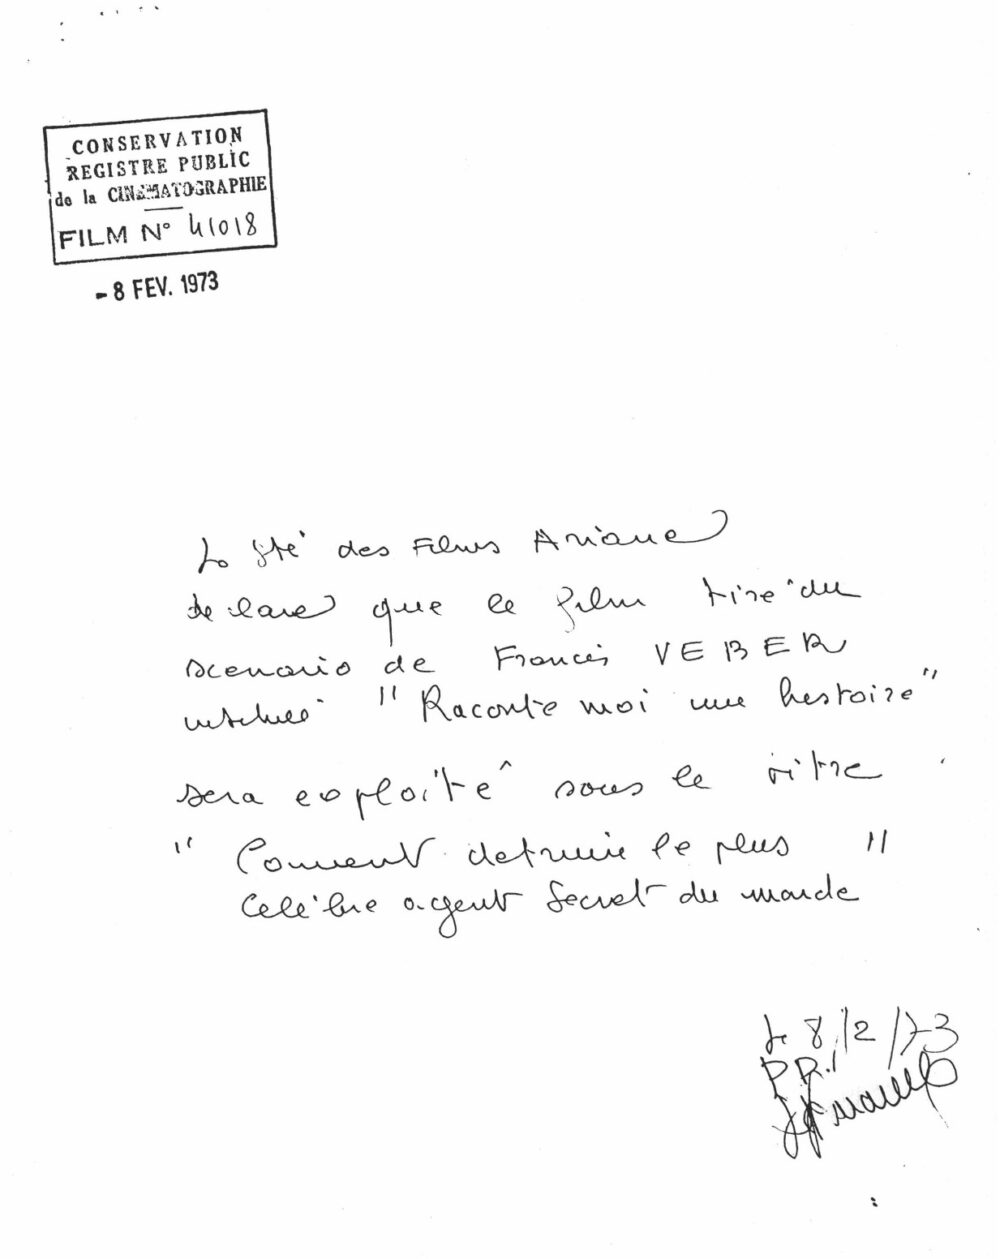 CONSERVATION
REGISTRE PUBLIC
de la CINEMATOGRAPHIE
FILM N° 41018
- 8 FEV. 1973
La Sté des Films Ariane
declare que le film tiré du
scenario de Francis VEBER
intitulé "Raconte moi une histoire"
sera exploité sous le titre
"Comment detruire le plus "
Celébre agent Secret du monde
Le 8/2/73
P.R.